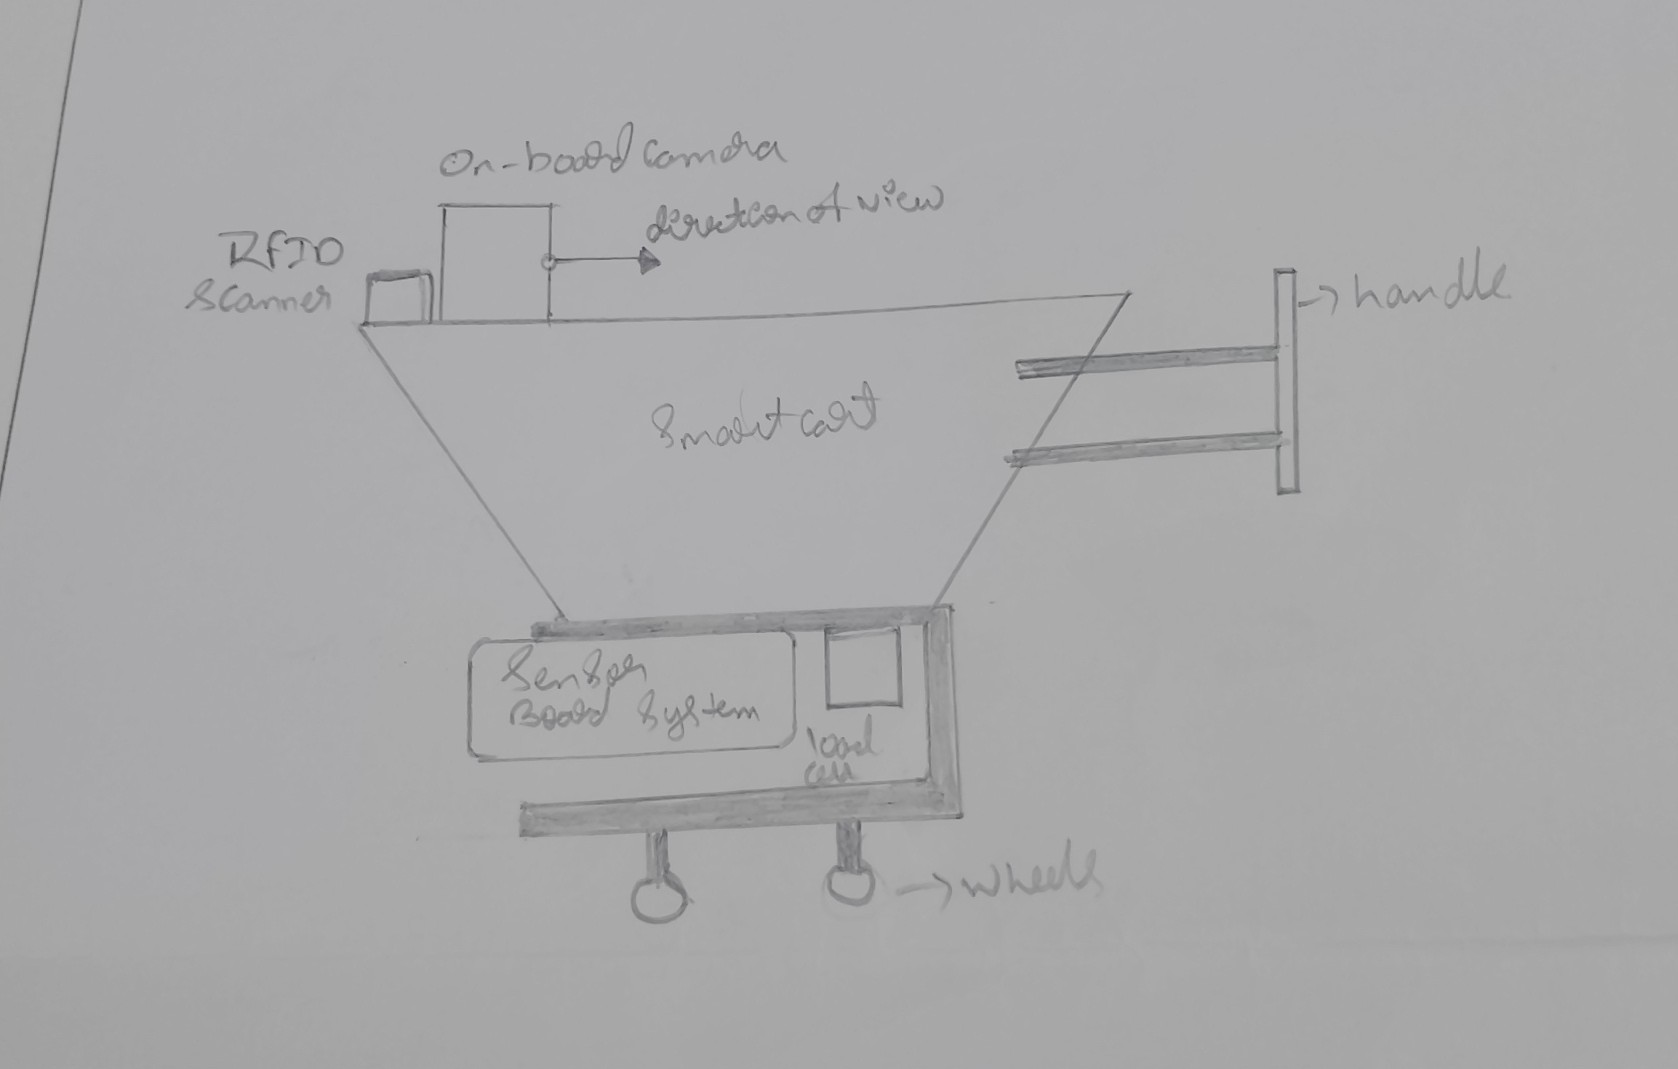 On-board camera
direction of view
RFID
scanner
handle
Smart cart
Sensor
Board System
load
cell
wheels